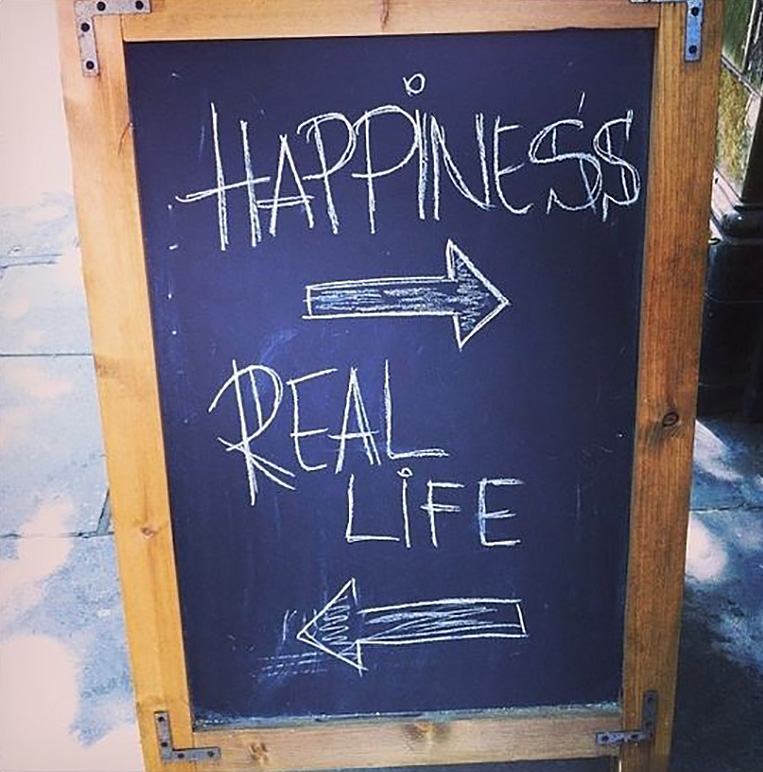 HAPPINESS
REAL
LIFE